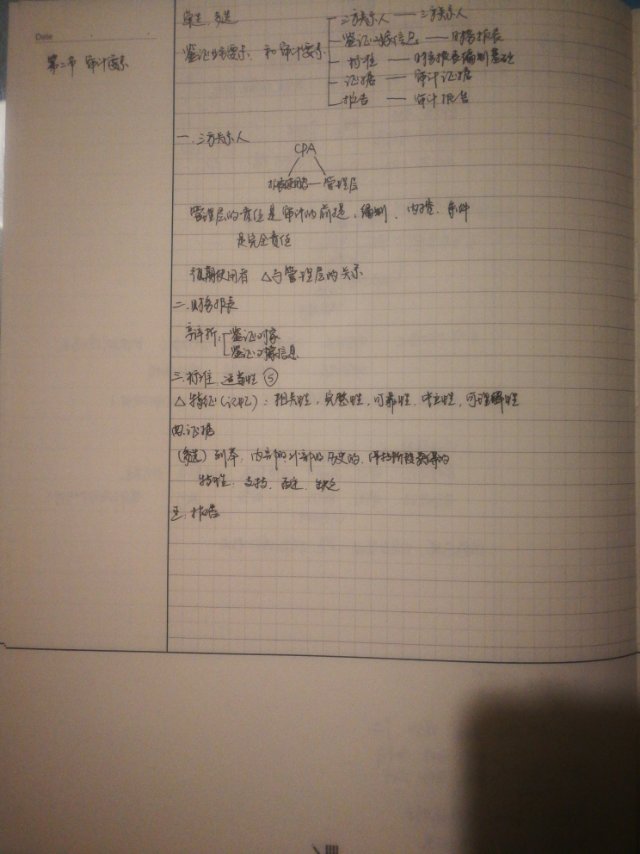 Date
第二节 审计要素
单选、多选
鉴证业务要素 和审计要素
三方关系人 — 三方关系人
鉴证对象信息 — 财务报表
标准 — 财务报表编制基础
证据 — 审计证据
报告 — 审计报告
一、三方关系人
CPA
预期使用者 — 管理层
管理层的责任是审计的前提,编制、内控、条件
是完全责任
预期使用者 △与管理层的关系
二、财务报表
辨析:鉴证对象
鉴证对象信息
三、标准 适当性 ⑤
△特征(记忆):相关性,完整性,可靠性,中立性,可理解性
四、证据
(多选)列举,内部的外部的历史的
特性:支持、否定、缺乏
五、报告